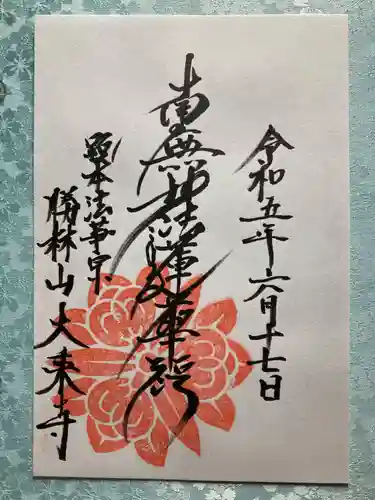 令和五年六月十七日
南無妙法蓮華経
顕本法華宗
勝林山大東寺